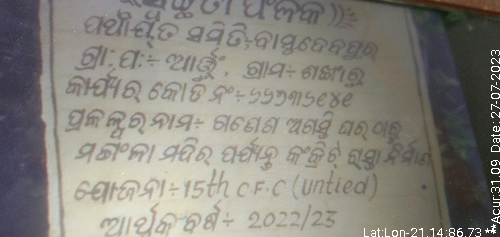 ସ୍ୱଚ୍ଛତା ଫଳକ))÷
ପଞ୍ଚାୟତ ସମିତି÷ବାସୁଦେବପୁର
ଗ୍ରା:ପ:÷ ଗ୍ରାମ÷
କାର୍ଯ୍ୟର କୋଡ ନଂ÷
ପ୍ରକଳ୍ପର ନାମ÷ ଗଣେଶ ଅଗସ୍ତି ଘର ଠାରୁ
ମଙ୍ଗଳା ମନ୍ଦିର ପର୍ଯ୍ୟନ୍ତ କଂକ୍ରିଟ୍ ରାସ୍ତା ନିର୍ମାଣ
ଯୋଜନା÷15th C.F.C (untied)
ଆର୍ଥିକ ବର୍ଷ÷ 2022/23
Lat:Lon-21.14:86.73 ** Acur:31.09 Date: 27-07-2023